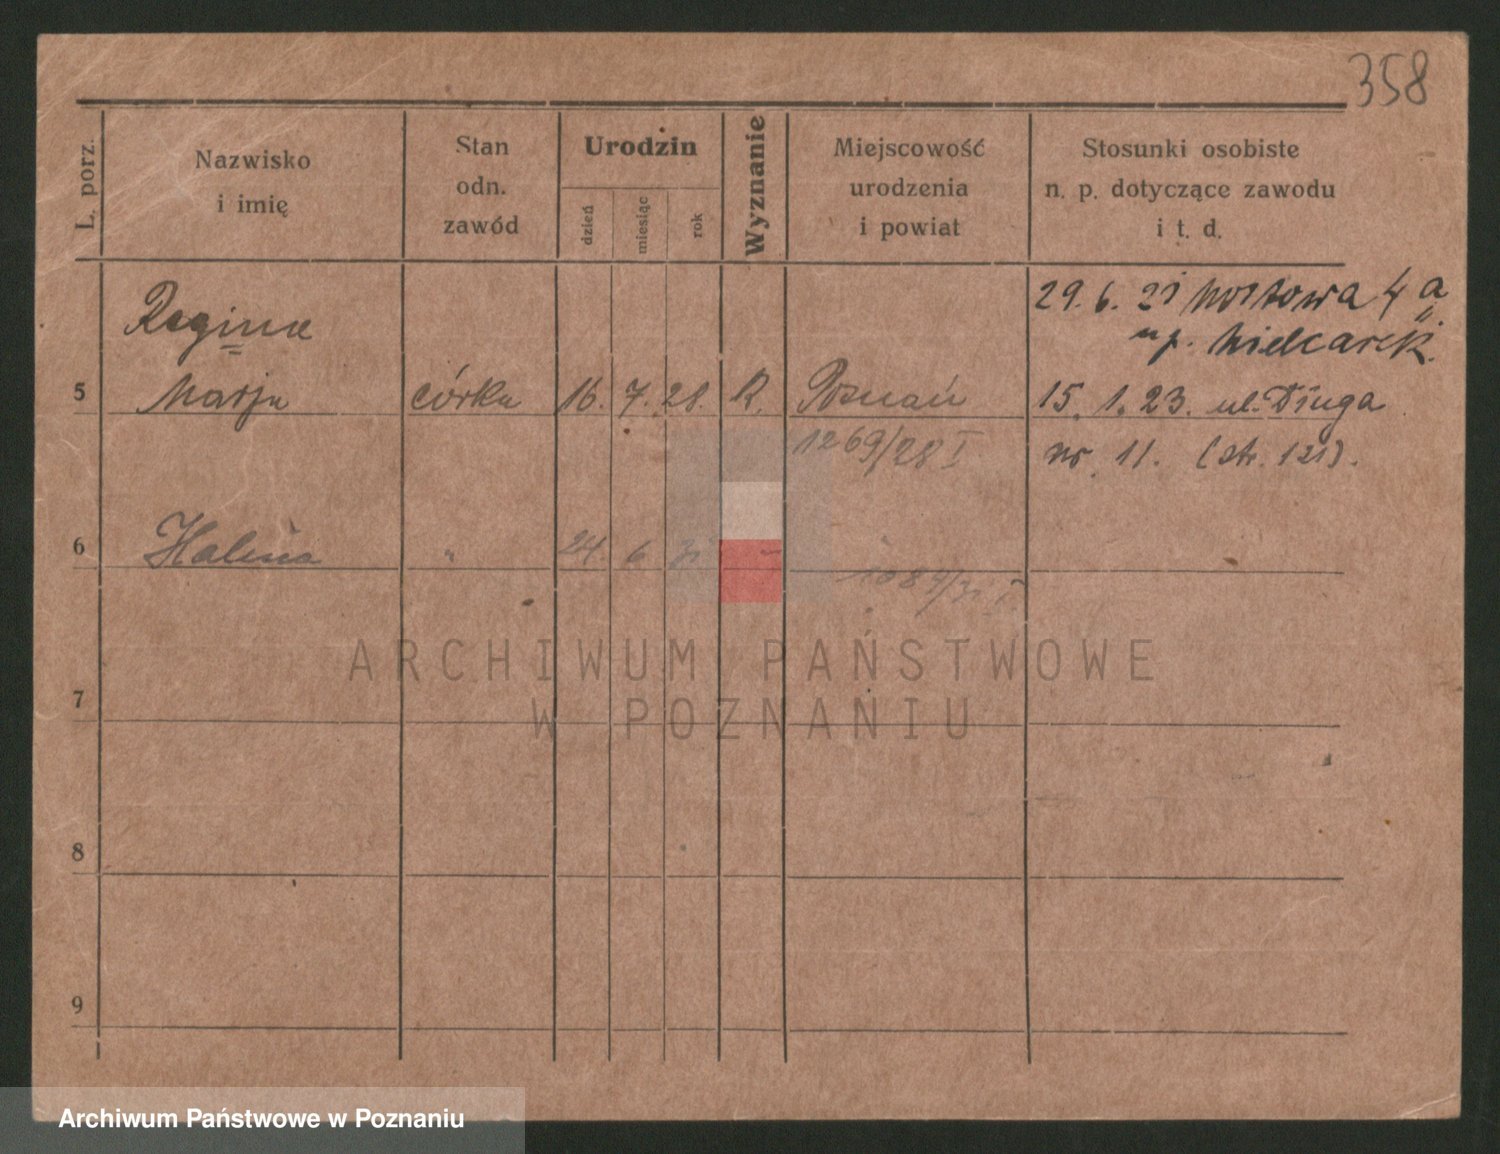 358
L. porz.
Nazwisko
i imię
Stan
odn.
zawód
Urodzin
dzień
miesiąc
rok
Wyznanie
Miejscowość
urodzenia
i powiat
Stosunki osobiste
n. p. dotyczące zawodu
i t. d.
29. 6. 21 Mostowa 4 a
up. Mielcarek.
Regina
5 Marja córka 16. 7. 28. R. Poznań 15. 1. 23. ul. Długa
1269/28 I nr. 11. (str. 121).
6 Halina " 24. 6 31 "
1084/31 I.
ARCHIWUM PAŃSTWOWE
W POZNANIU
7
8
9
Archiwum Państwowe w Poznaniu